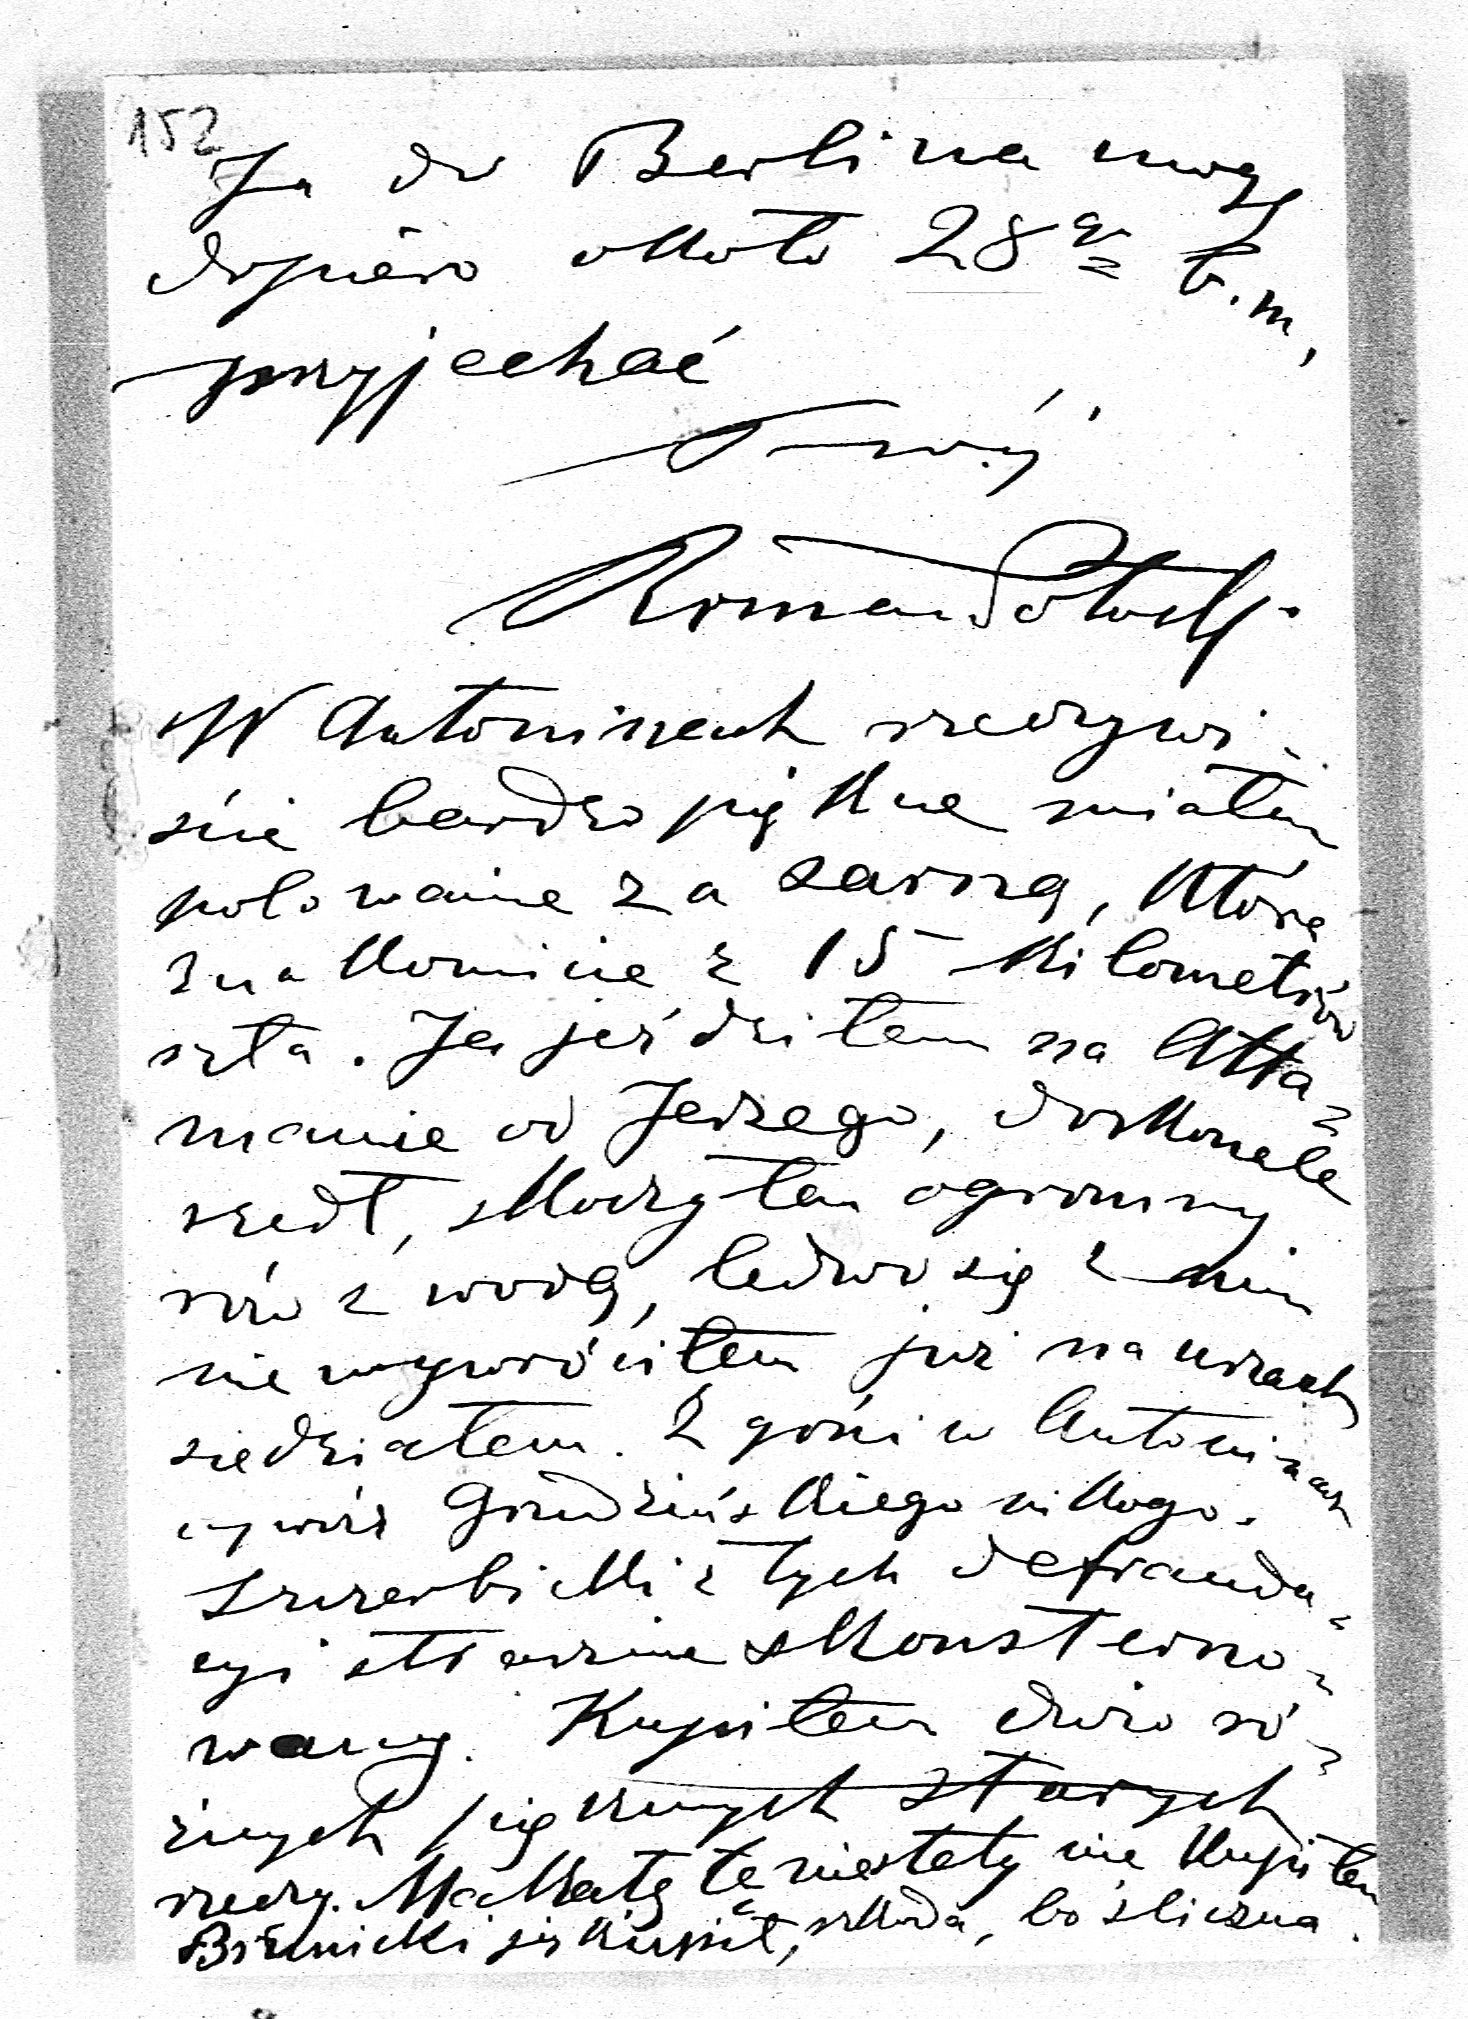 152
Ja do Berlina mogę
dopiero około 28go b.m.
przyjechać
Twój
Roman Potocki
W Antoninach rzeczywi-
ście bardzo piękne miałem
polowanie za sarną, która
znakomicie z 15 kilometrów
szła. Ja jeździłem na Atta-
manie od Jerzego, doskonale
szedł, skoczyłem ogromny
rów z wodą, ledwo się z nim
nie wywróciłem już na uszach
siedziałem. Z gości w Antoninach
oprócz Grudzińskiego nikogo.
Szczerbicki z tych defrauda-
cyi strasznie skonsterno-
wany. Kupiłem dużo ró-
żnych pięknych starych
rzeczy. Makatę tę niestety nie kupiłem
Brzunicki ją kupił, szkoda, bo śliczna.